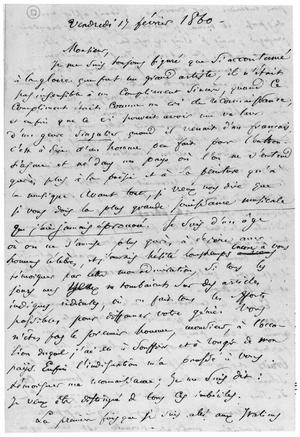 Vendredi 17 février 1860
Monsieur,
Je me suis toujours figuré que si accoutumé
à la gloire que fût un grand artiste, il n'était
pas insensible à un compliment sincère, quand ce
compliment était comme un cri de reconnaissance,
et enfin que ce cri pouvait avoir une valeur
d'un genre singulier quand il venait d'un français,
c'est-à-dire d'un homme peu fait pour l'enthou-
siasme et né dans un pays où l'on ne s'entend
guère, plus à la poésie et à la peinture qu'à
la musique. Avant tout, je veux vous dire que
je vous dois la plus grande jouissance musicale
que j'aie jamais éprouvée. Je suis d'un âge
où on ne s'amuse plus guère, à écrire aux
hommes célèbres, et j'aurais hésité longtemps encore à
témoigner par lettre mon admiration, si tous les
jours mes yeux ne tombaient sur des articles
indignes, ridicules, où on fait tous les efforts
possibles, pour diffamer votre génie. Vous
n'êtes pas le premier homme, monsieur, à l'occa-
sion duquel j'ai eu à souffrir et à rougir de mon
pays. Enfin l'indignation m'a poussé à vous
témoigner ma reconnaissance; je me suis dit:
je veux être distingué de tous ces imbéciles.
La première fois que je suis allé aux Italiens